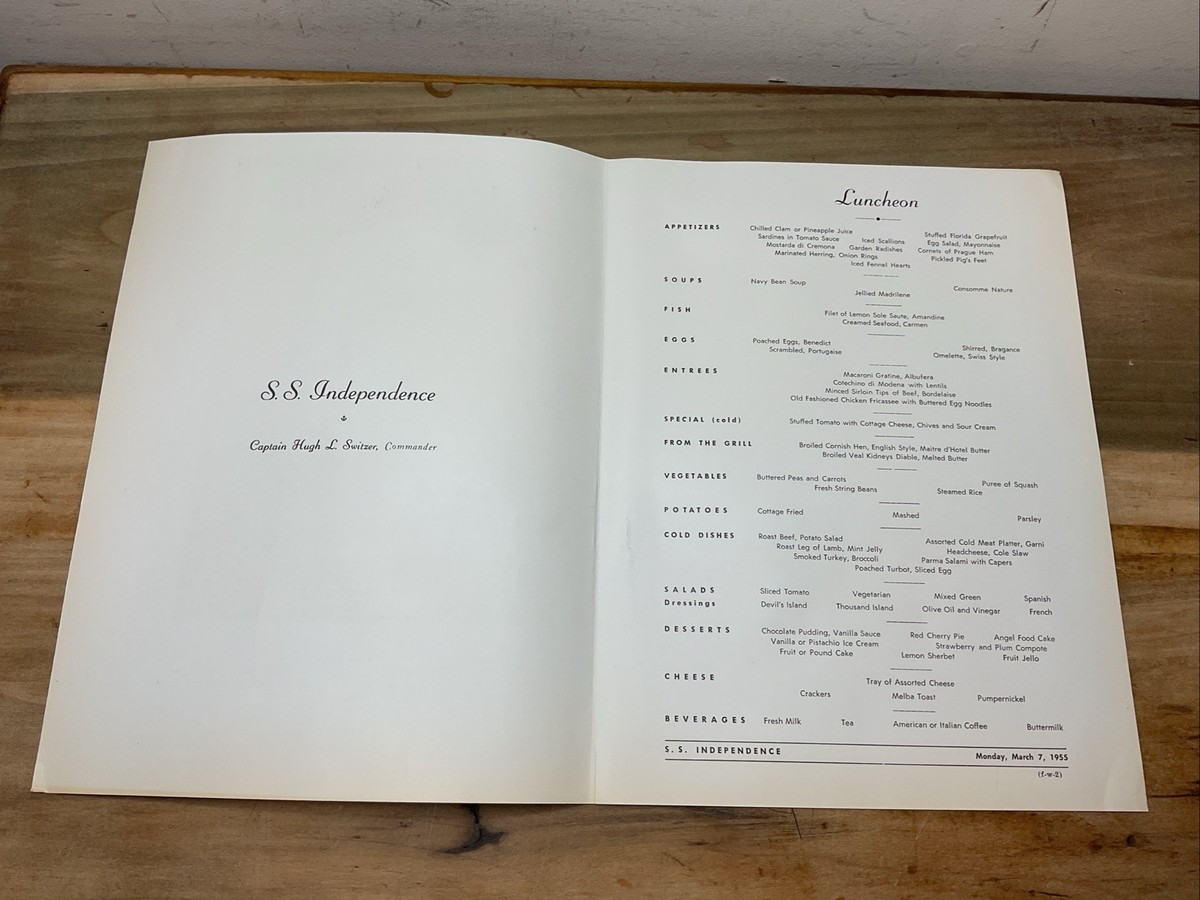 S. S. Independence
Captain Hugh L. Switzer, Commander
Luncheon
APPETIZERS Chilled Clam or Pineapple Juice Stuffed Florida Grapefruit
Sardines in Tomato Sauce Iced Scallions Egg Salad, Mayonnaise
Mostarda di Cremona Garden Radishes Cornets of Prague Ham
Marinated Herring, Onion Rings Pickled Pig's Feet
Iced Fennel Hearts
SOUPS Navy Bean Soup Consomme Nature
Jellied Madrilene
FISH Filet of Lemon Sole Saute, Amandine
Creamed Seafood, Carmen
EGGS Poached Eggs, Benedict Shirred, Bragance
Scrambled, Portugaise Omelette, Swiss Style
ENTREES Macaroni Gratine, Albufera
Cotechino di Modena with Lentils
Minced Sirloin Tips of Beef, Bordelaise
Old Fashioned Chicken Fricassee with Buttered Egg Noodles
SPECIAL (cold) Stuffed Tomato with Cottage Cheese, Chives and Sour Cream
FROM THE GRILL Broiled Cornish Hen, English Style, Maitre d'Hotel Butter
Broiled Veal Kidneys Diable, Melted Butter
VEGETABLES Buttered Peas and Carrots Puree of Squash
Fresh String Beans Steamed Rice
POTATOES Cottage Fried Mashed Parsley
COLD DISHES Roast Beef, Potato Salad Assorted Cold Meat Platter, Garni
Roast Leg of Lamb, Mint Jelly Headcheese, Cole Slaw
Smoked Turkey, Broccoli Parma Salami with Capers
Poached Turbot, Sliced Egg
SALADS Sliced Tomato Vegetarian Mixed Green Spanish
Dressings Devil's Island Thousand Island Olive Oil and Vinegar French
DESSERTS Chocolate Pudding, Vanilla Sauce Red Cherry Pie Angel Food Cake
Vanilla or Pistachio Ice Cream Strawberry and Plum Compote
Fruit or Pound Cake Lemon Sherbet Fruit Jello
CHEESE Tray of Assorted Cheese
Crackers Melba Toast Pumpernickel
BEVERAGES Fresh Milk Tea American or Italian Coffee Buttermilk
S. S. INDEPENDENCE Monday, March 7, 1955
(f-w-2)